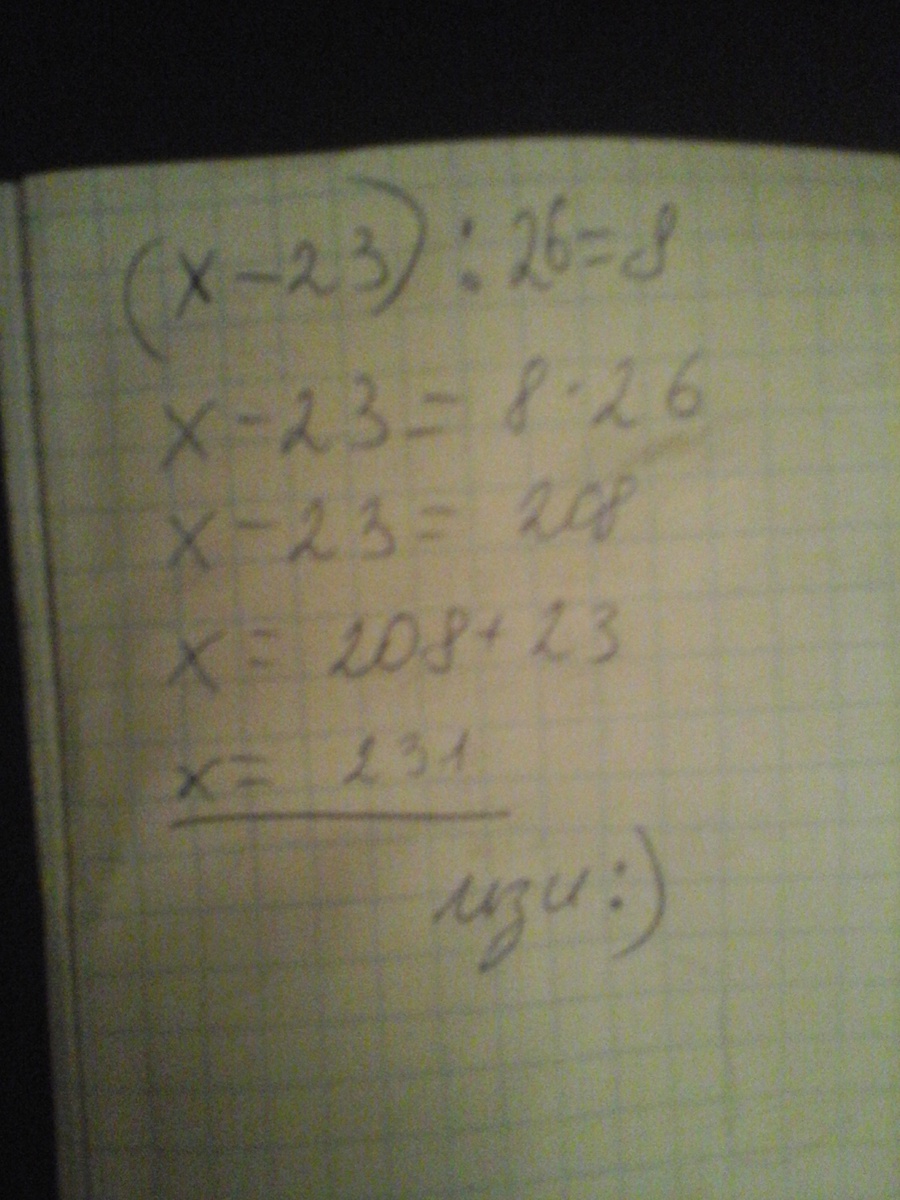 (x-23):26=8
x-23=8·26
x-23=208
x=208+23
x=231
изи:)